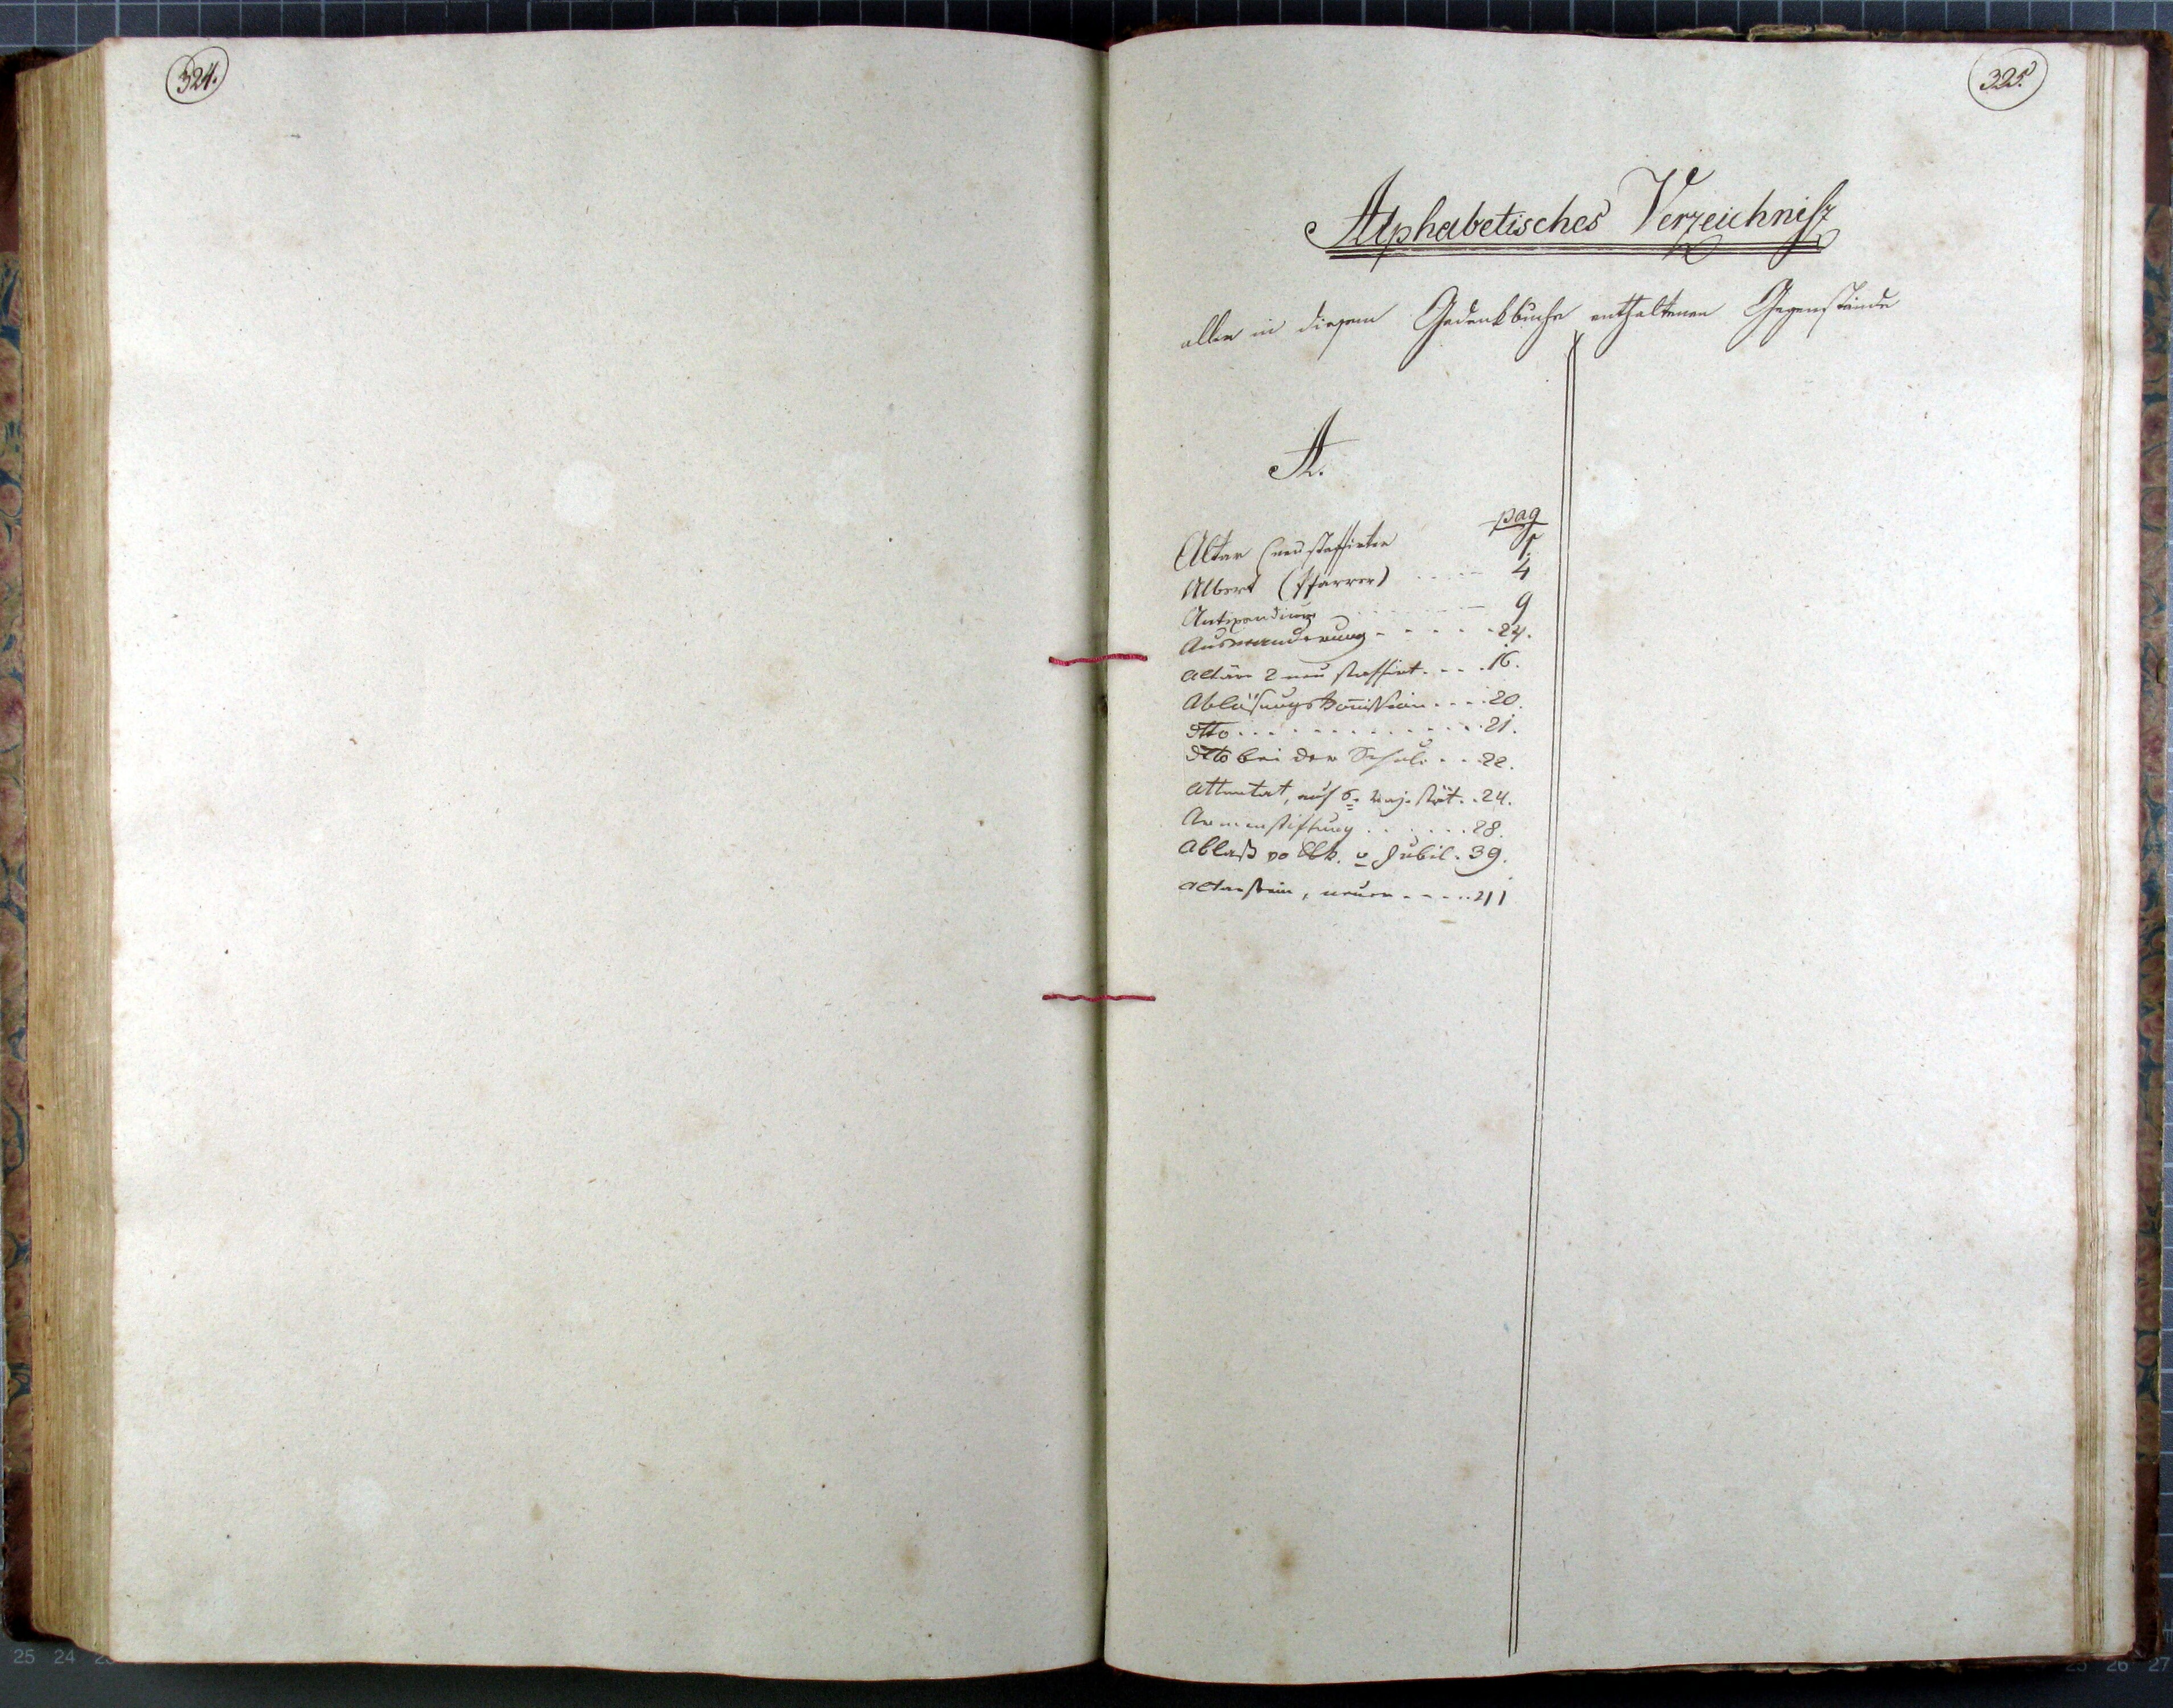 324.
325.
Alphabetisches Verzeichnisz
aller in diesem Gedenkbuche enthaltenen Gegenstände
A.
pag
Altar (neu staffirter 1.
Albert (Pfarrer) 4
Antipendium 9
Auswanderung 24.
Altäre 2 neu staffirt 16.
Ablösungs Kom̅ission 20.
dtto 21.
dtto bei der Schule 22.
Attentat, auf S. Majestät 24.
Armenstiftung 28.
Ablaß u Jubil. 39.
Altarstein, neuer 211
25 24
26 27